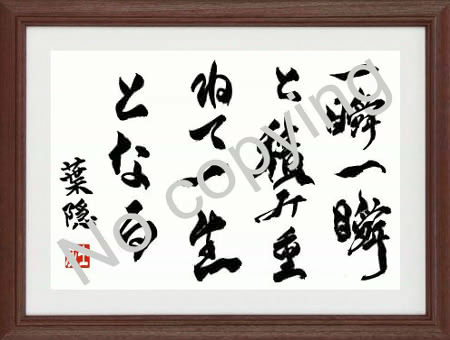 一瞬一瞬
と積み重
ねて一生
となる
葉隠
No copying